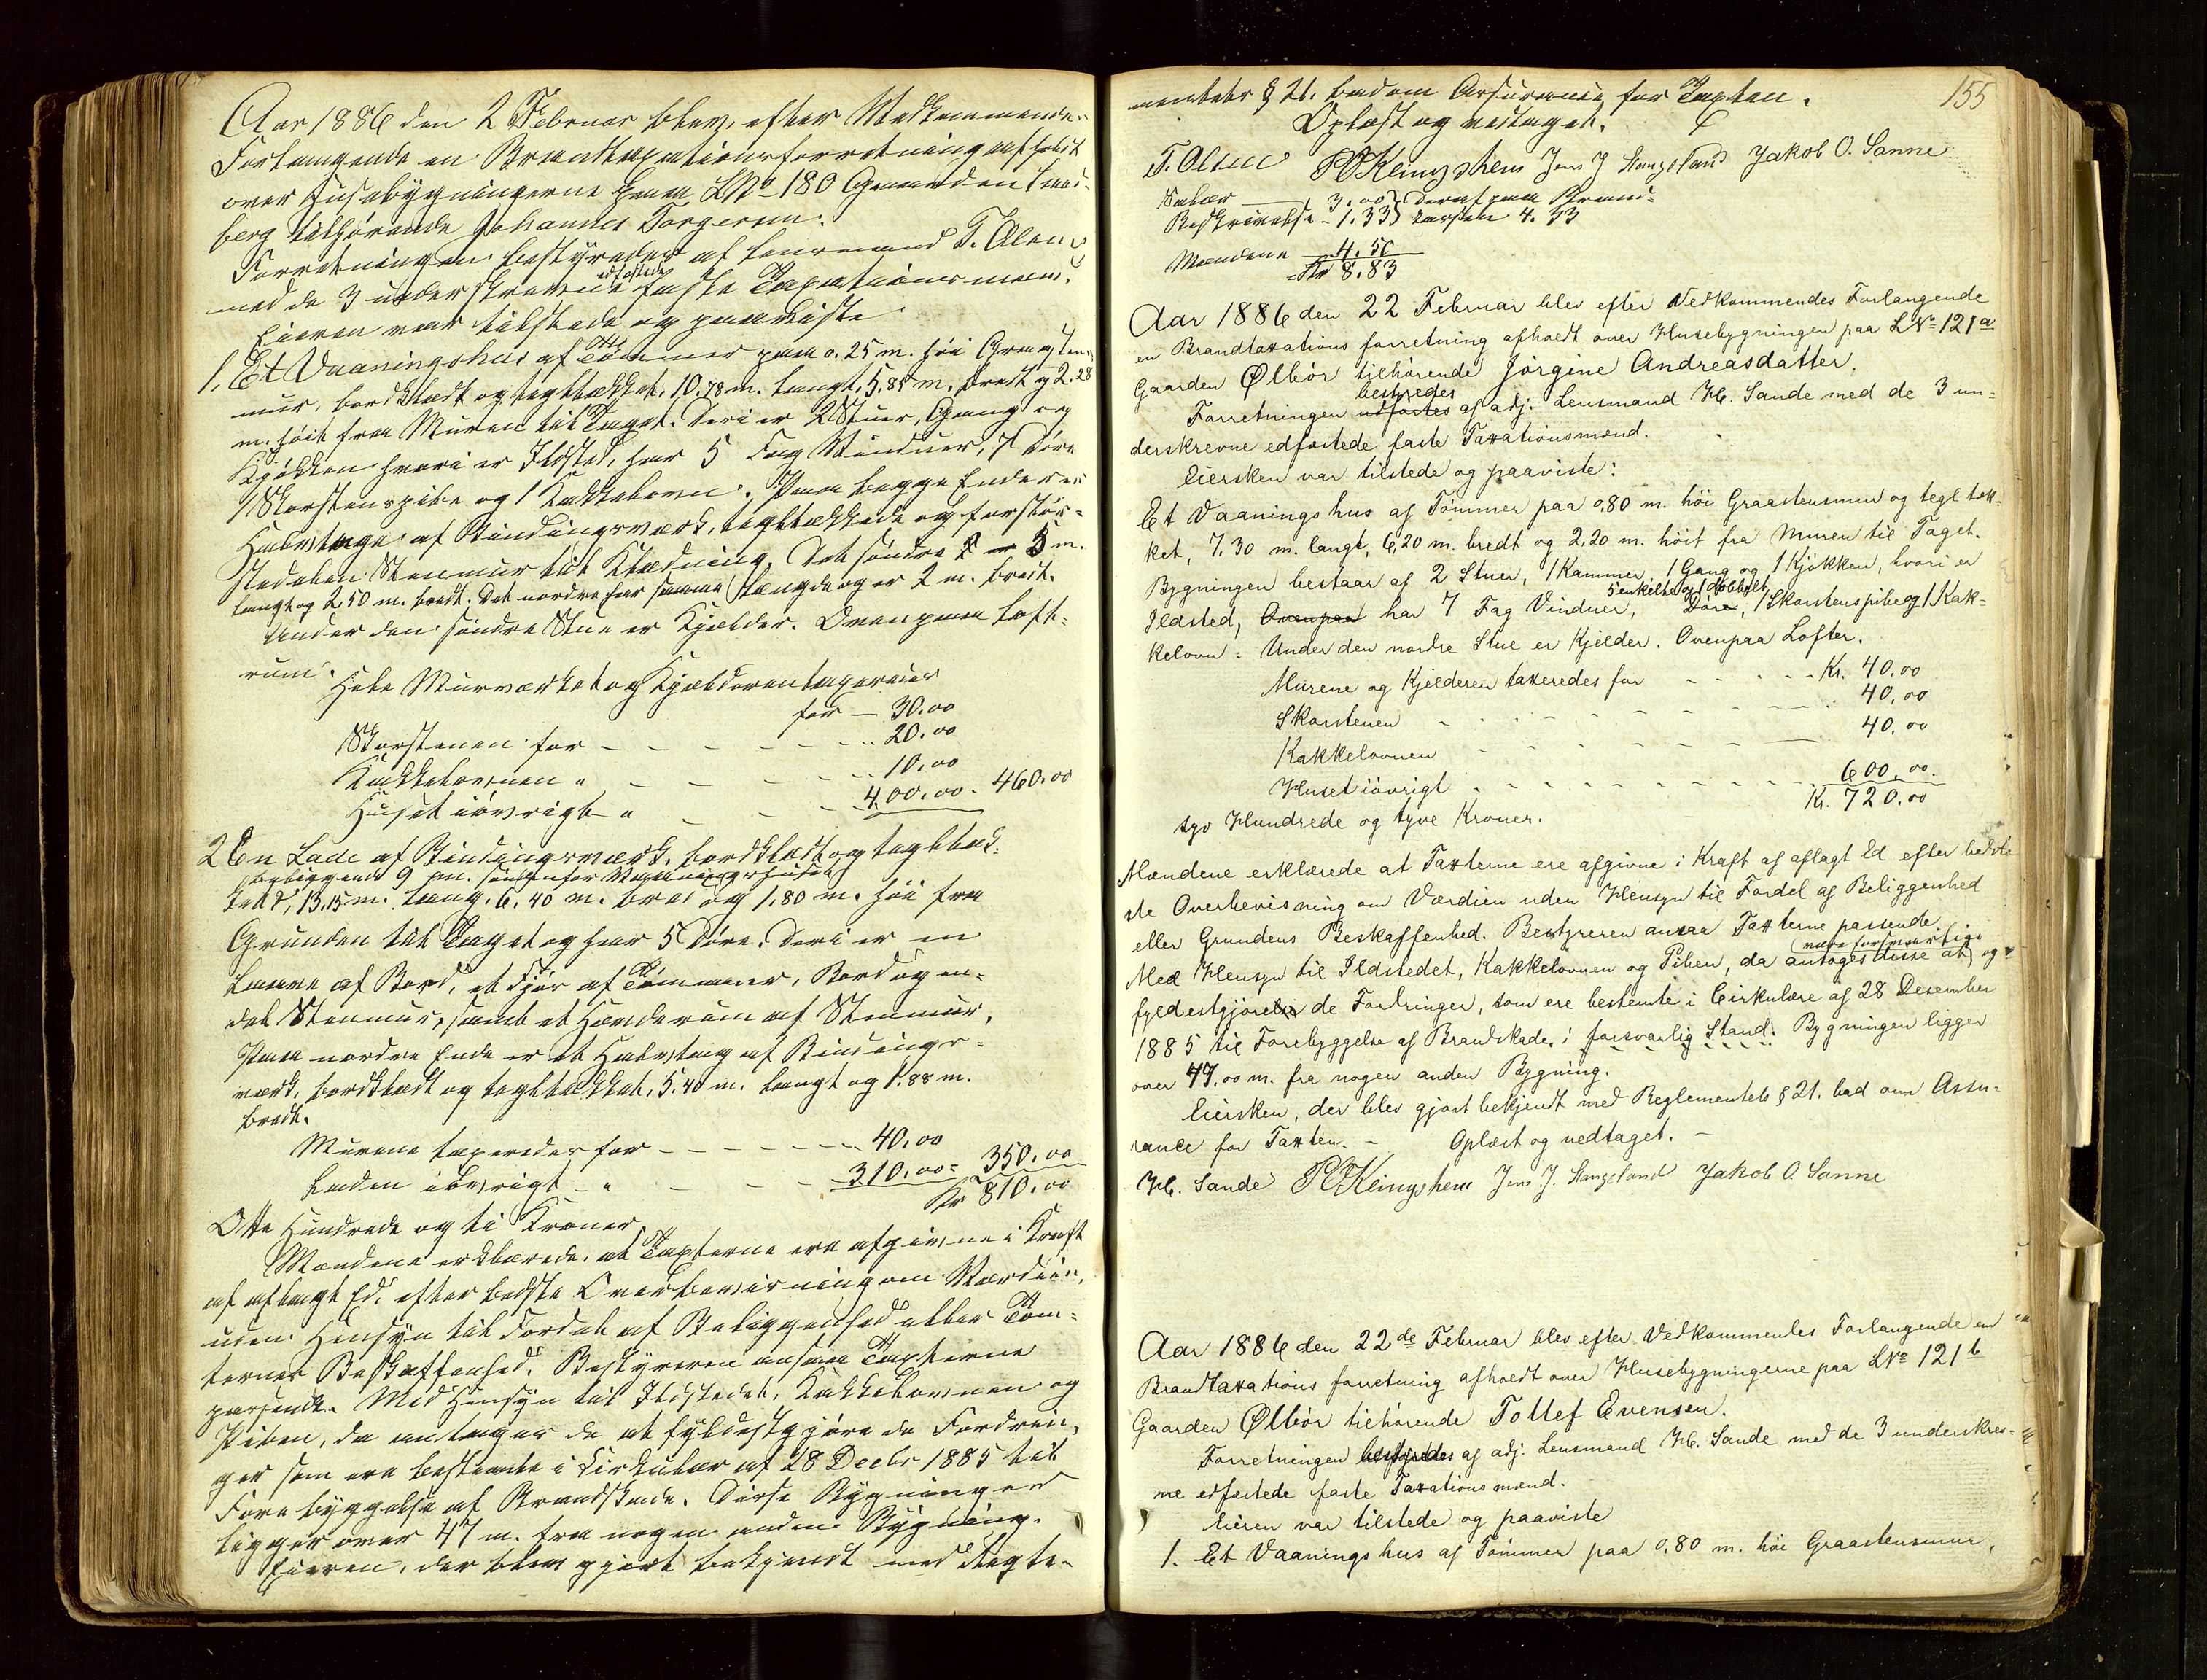 Aar 1886 den 2 Februar blev, efter Vedkommendes
Forlangende en Brandtaxationsforretning afholdt
over Husebygningerne paa LNo 180 Gaarden
berg tilhørende Johannes Torgersen.
Forretningen bestyredes af Lensmand T. Olsen
med de 3 underskrevne edfæstede faste Taxationsmænd.
Eieren var tilstede og paaviste
1. Et Vaaningshus af Tømmer paa 0.25 m. höi Graastens
mur, bordklædt og tegltækket, 10.78 m. langt, 5.85 m. bredt og 2.28
m. höit fra Muren til Taget. Deri er 2 Stuer, Gang og
Kjøkken hvori er Ildsted, har 5 Fag Vinduer, 7 Döre
1 Skorstenspibe og 1 Kakkelovn. Paa begge Ender er
Halvtage af Bindingsværk, tegltækkede og forstör-
stedelen Stenmur til Klædning. Det söndre er 3 m.
langt og 2.50 m. bredt. Det nordre har samme Længde og er 2 m. bredt.
Under den söndre Stue er Kjelder. Ovenpaa Loft-
rum.
Hele Murværket og Kjælderen taxeredes
for — 30.00
Skorstenen for - - - - - 20.00
Kakkelovnen " - - - - 10.00
Huset iövrigt " - - - 400.00 - 460.00
2 En Lade af Bindingsværk, bordklædt og tegltæk-
beliggende 9 m. söndenfor Vaaningshuset
ket, 13.15 m. lang, 6.40 m. bred og 1.80 m. höi fra
Grunden til Taget og har 5 Döre. Deri er en
Laave af Bord, et Fjös af Tömmer, Bord og en-
del Stenmur, samt et Hönderum af Stenmur.
Paa nordre Ende er et Halvtag af Bindings-
værk, bordklædt og tegltækket, 5.40 m. langt og 1.88 m.
bredt.
Murene taxeredes for - - - - - 40.00
Laden iövrigt - " - - - 310.00 = 350.00
Kr 810.00
Otte Hundrede og ti Kroner.
Mændene erklærede, at Taxterne ere afgivne i Kraft
af aflagt Ed, efter bedste Overbevisning om Værdien,
uden Hensyn til Fordel af Beliggenhed eller Tom-
ternes Beskaffenhed. Bestyreren ansaa Taxterne
passende. Med Hensyn til Ildstedet, Kakkelovnen og
Piben, da antages de at fyldestgjöre de Fordrin-
ger som ere bestemte i Cirkulær af 28 Decbr 1885 til
Forebyggelse af Brandskade. Disse Bygninger
ligger over 47 m. fra nogen anden Bygning.
Eieren, der blev gjort bekjendt med Regle-
155
mentets § 21. badom Assurance for Taxten.
Oplæst og vedtaget.
T. Olsen Jens J Stangeland Jakob O. Sanne
Salær — 3.00 } deraf paa Brand-
Beskrivelse - 1.33 } kassen 4.33
Mændene 4.50
Kr 8.83
Aar 1886 den 22 Februar blev efter Vedkommendes Forlangende
en Brandtaxations forretning afholdt over Husebygningen paa LNo 121 a
Gaarden Ølbör tilhörende Jörgine Andreasdatter.
bestyredes
Forretningen udförtes af adj. Lensmand H. Sande med de 3 un-
derskrevne edfæstede faste Taxationsmænd.
Eiersken var tilstede og paaviste:
Et Vaaningshus af Tömmer paa 0,80 m. höi Graastensmur og tegl tæk-
ket, 7.30 m. langt, 6,20 m. bredt og 2,20 m. höit fra Muren til Taget.
Bygningen bestaar af 2 Stuer, 1 Kammer, 1 Gang og 1 Kjökken, hvori er
5 enkelte og 1 dobbelt
Ildsted, Ovenpaa har 7 Fag Vinduer, Döre, 1 Skorstenspibe og 1 Kak-
kelovn. Under den nordre Stue er Kjelder. Ovenpaa Lofter.
Murene og Kjelderen taxeredes for - - - - Kr. 40,00
Skorstenen - - - - - - 40,00
Kakkelovnen - - - - - - 40,00
Huset iövrigt - - - - - - 600,00.
Kr. 720,00
syv Hundrede og tyve Kroner.
Mændene erklærede at Taxterne ere afgivne i Kraft af aflagt Ed efter bed-
ste Overbevisning om Værdien uden Hensyn til Fordel af Beliggenhed
eller Grundens Beskaffenhed. Bestyreren ansaa Taxterne passende.
være forsvarlige
Med Hensyn til Ildstedet, Kakkelovnen og Piben, da antages disse at og
fyldestgjöre de Fordringer, som ere bestemte i Cirkulære af 28 Desember
1885 til Forebyggelse af Brandskade, i forsvarlig Stand. Bygningen ligger
over 47.00 m. fra nogen anden Bygning.
Eiersken, der blev gjort bekjendt med Reglementets § 21. bad om Assu-
rance for Taxten. - Oplæst og vedtaget. -
H. Sande Jens J. Stangeland Jakob O. Sanne
Aar 1886 den 22de Februar blev efter Vedkommendes Forlangende en
Brandtaxations forretning afholdt over Husebygningerne paa LNo 121 b
Gaarden Ølbör tilhörende Tollef Evensen.
Forretningen bestyredes af adj. Lensmand H. Sande med de 3 underskrev-
ne edfæstede faste Taxationsmænd.
Eieren var tilstede og paaviste
1. Et Vaaningshus af Tömmer paa 0,80 m. höi Graastensmur,